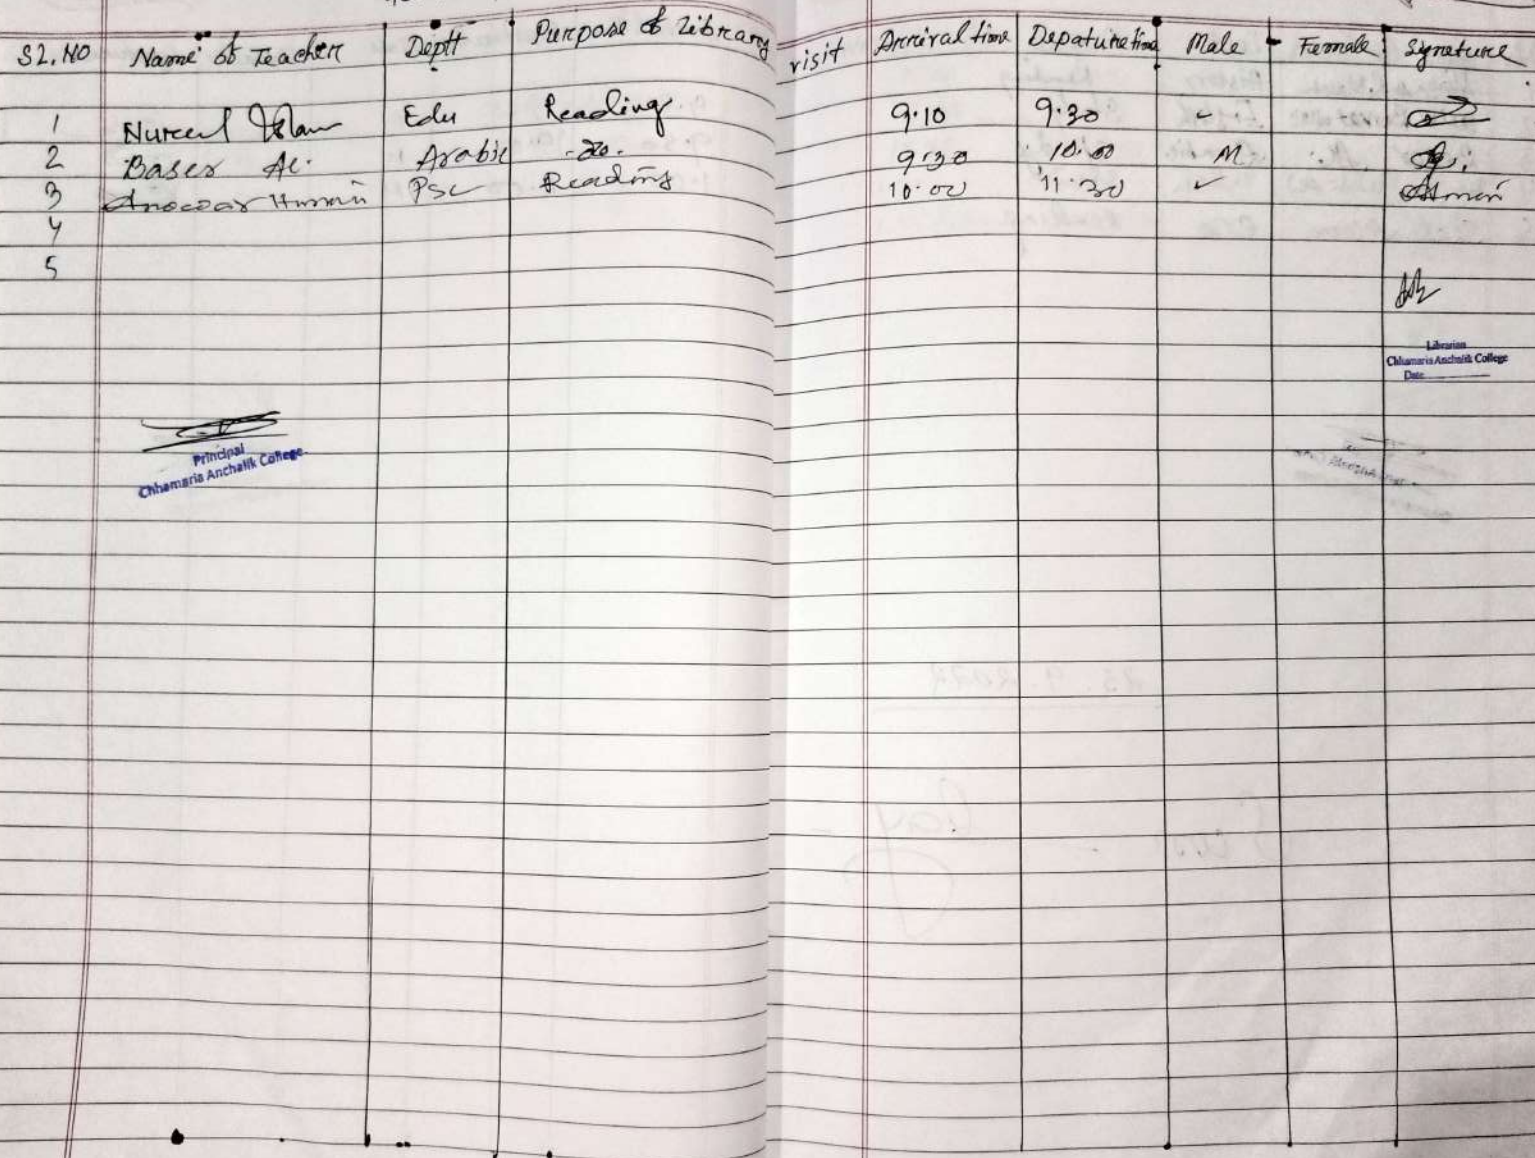 SL.NO Name of Teacher Deptt Purpose of Library visit Arrival time Depature time Male Female Signature
1 Nurul Islam Edu Reading 9.10 9.30 ✓
2 Baser Al. Arabic -do- 9.30 10.00 M
3 Psc Reading 10.00 11.30 ✓
4
5
Librarian
Chhamaria Anchalik College
Date
Principal
Chhamaria Anchalik College.